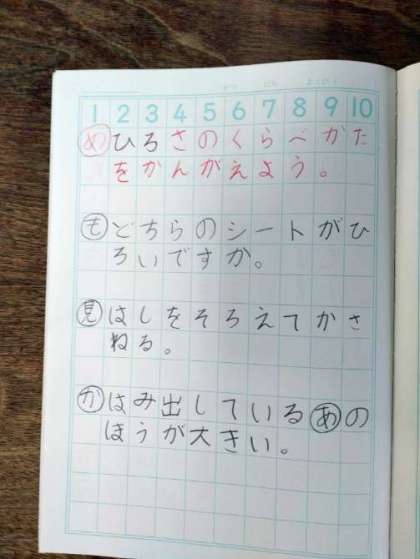 1 2 3 4 5 6 7 8 9 10
めひろさのくらべかた
をかんがえよう。
もどちらのシートがひ
ろいですか。
見はしをそろえてかさ
ねる。
かはみ出しているあの
ほうが大きい。